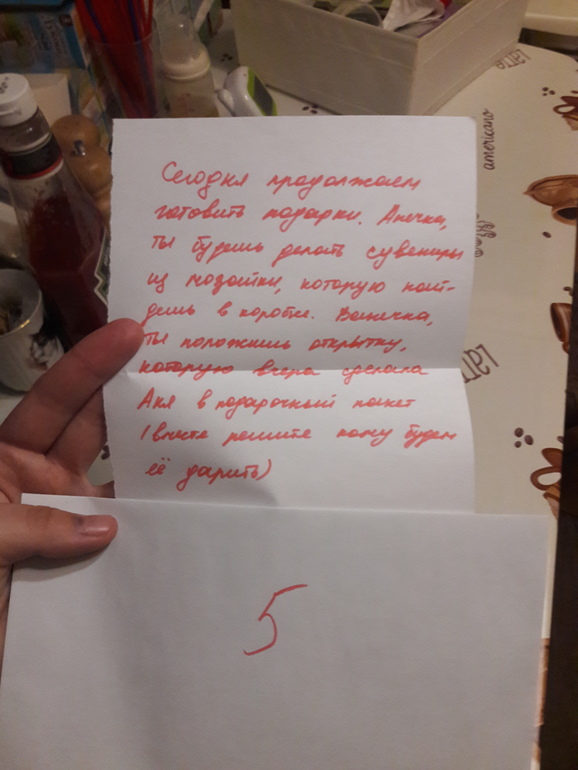 Сегодня продолжаем
готовить подарки. Анечка,
ты будешь делать сувениры
из мозайки, которую най-
дешь в коробке. Ванечка,
ты положишь открытку,
которую вчера сделала
Аня в подарочный пакет
(вместе решите кому будем
её дарить)
5
LATTE
americano
LATTE